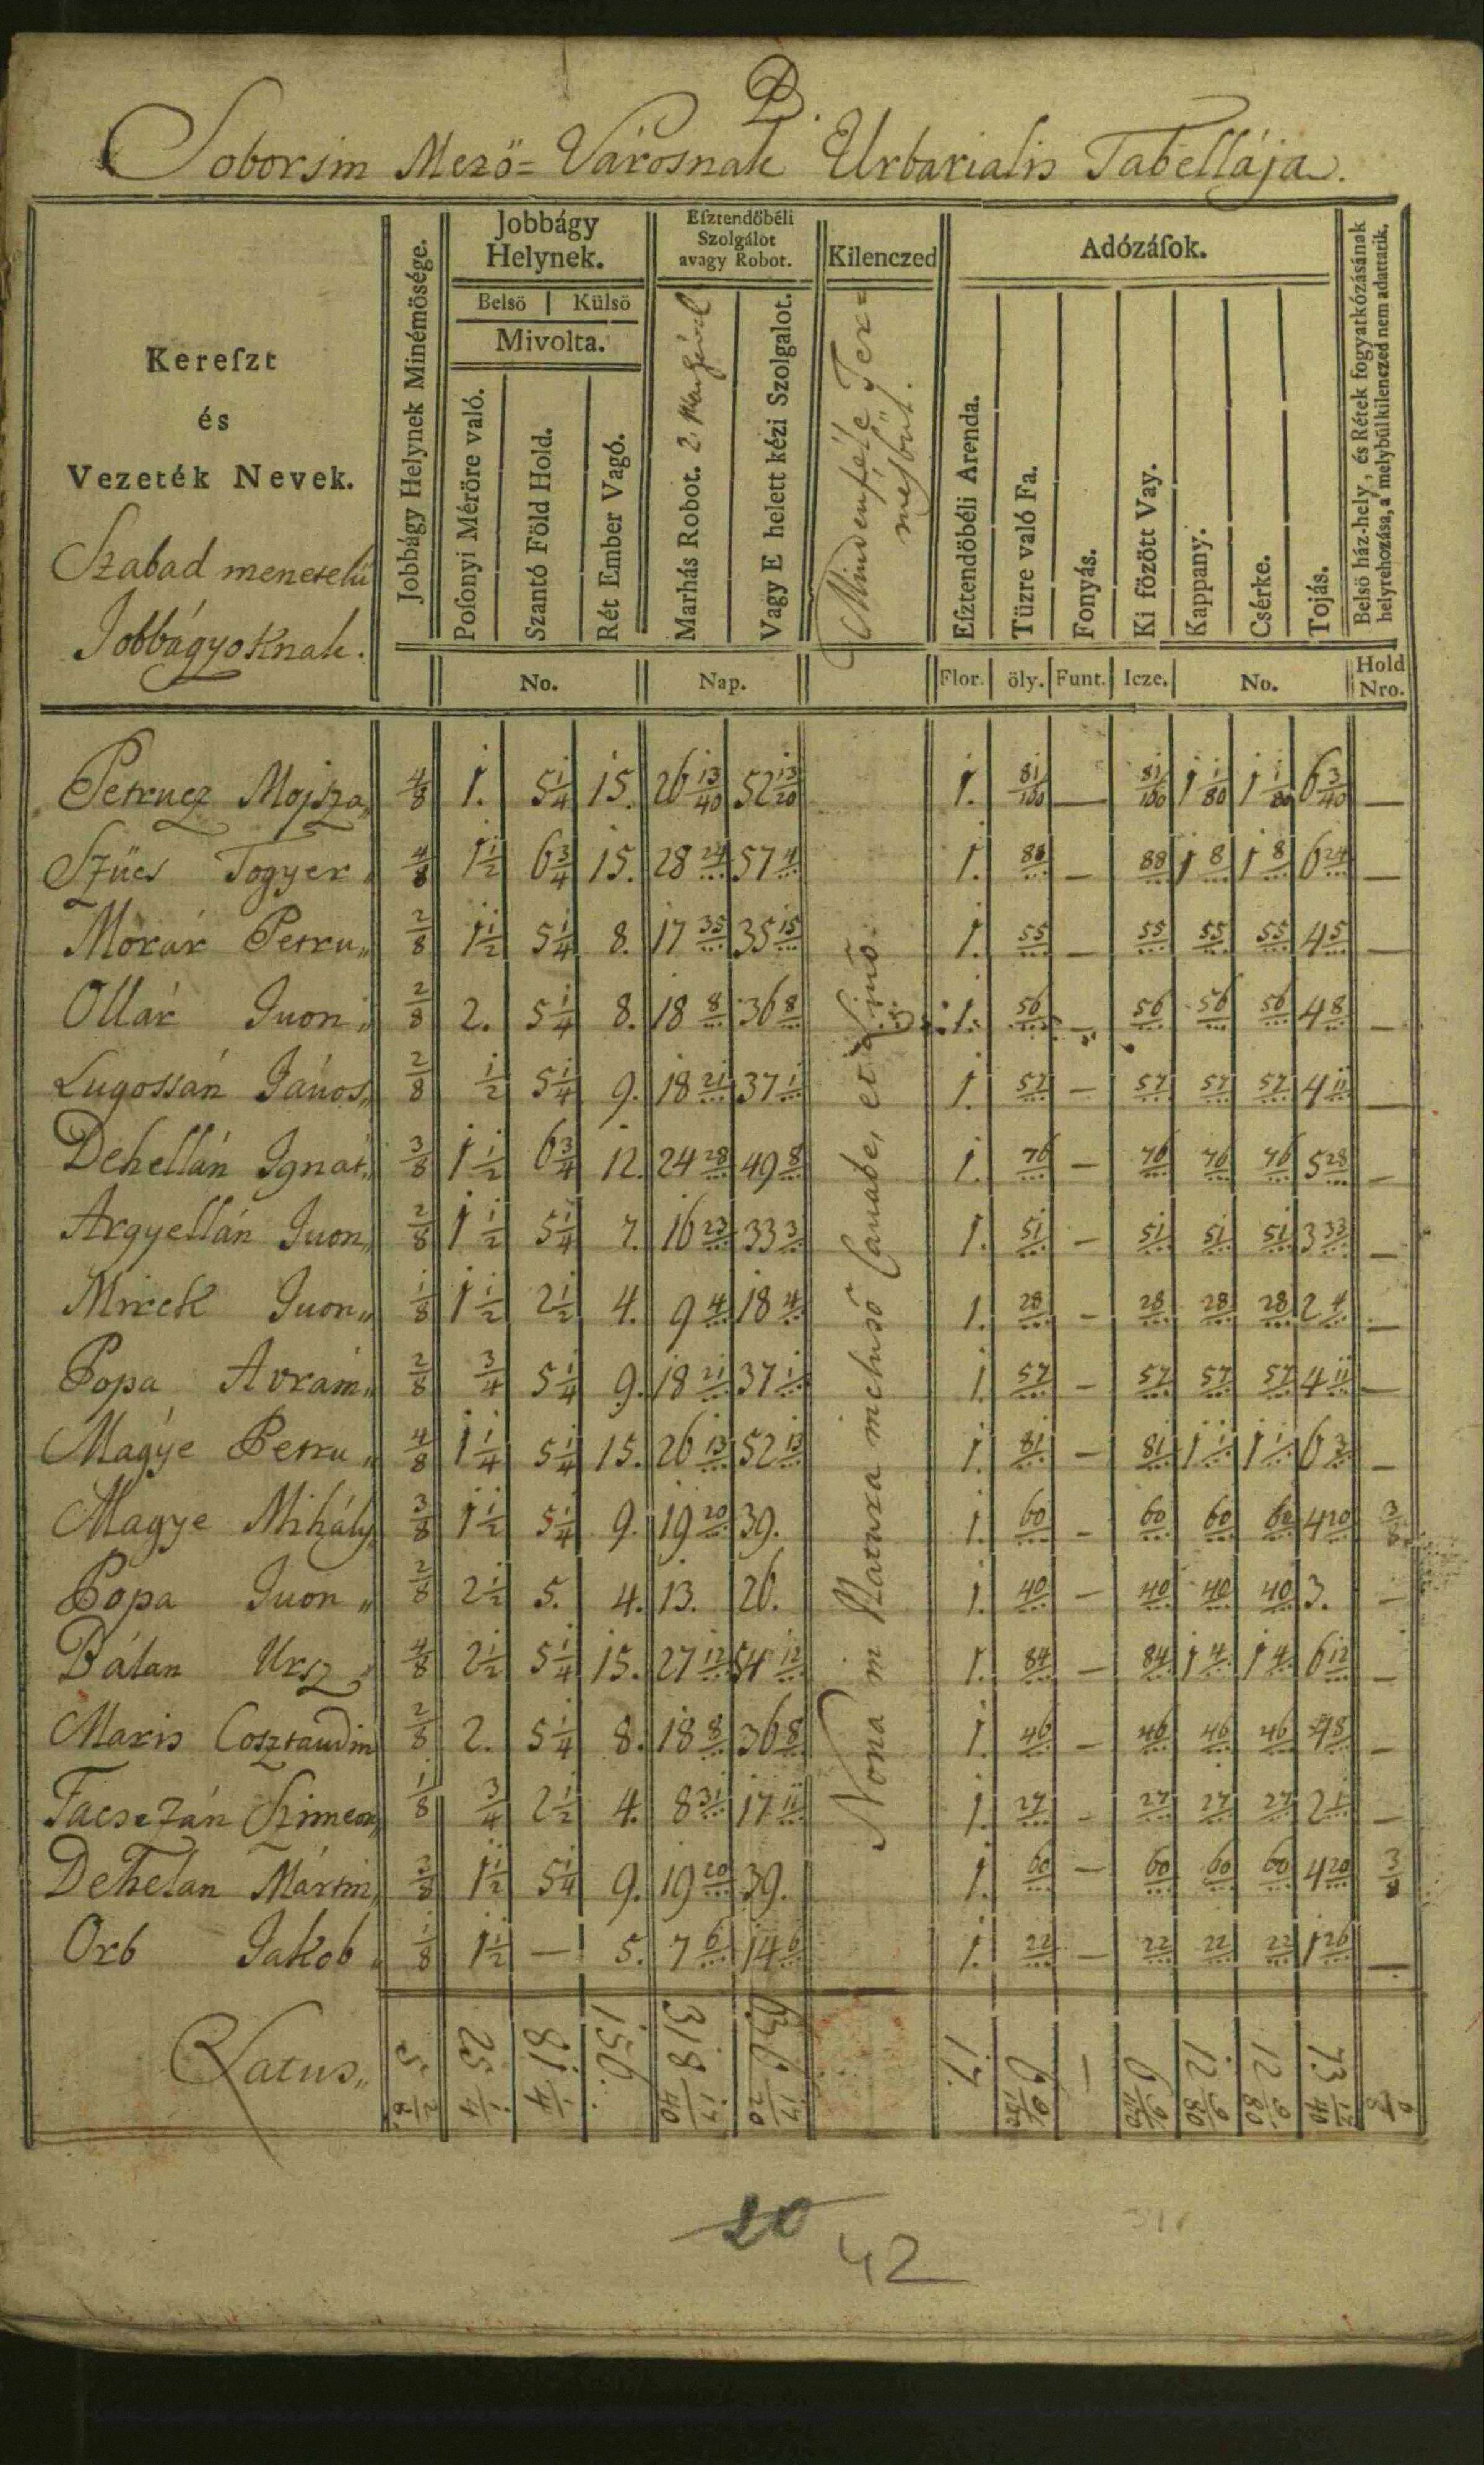 B.
Soborsin Mező=Városnak Urbarialis Tabellája.
Kereſzt
és
Vezeték Nevek.
Szabad menetelű
Jobbágyoknak.
Jobbágy Helynek Minémösége.
Jobbágy
Helynek.
Belsö | Külsö
Mivolta.
Poſonyi Méröre való.
Szantó Föld Hold.
Rét Ember Vagó.
No.
Eſztendőbéli
Szolgálot
avagy Robot.
Marhás Robot. 2. Marhával
Vagy E helett kézi Szolgalot.
Nap.
Kilenczed
Mindenféle Ter=
mésbül.
Adózáſok.
Eſztendöbéli Arenda.
Tüzre való Fa.
Fonyás.
Ki fözött Vay.
Kappany.
Csérke.
Tojás.
Flor. öly. Funt. Icze. No.
Belsö ház-hely, és Rétek fogyatkózásának
helyrehozása, a' melybül kilenczed nem adattatik.
Hold
Nro.
Petrucz Mojsza 4/8 1. 5 1/4 15. 26 13/40 52 13/20 1. 81/100 — 81/100 1 1/80 1 1/80 6 3/40 —
Szücs Togyer 4/8 1 1/2 6 3/4 15. 28 24/... 57 4/... 1. 88/... — 88/... 1 8/... 1 8/... 6 24/... —
Morár Petru 2/8 1 1/2 5 1/4 8. 17 35/... 35 15/... 1. 55/... — 55/... 55/... 55/... 4 5/... —
Ollár Juon 2/8 2. 5 1/4 8. 18 8/... 36 8/... 1. 56/... — 56/... 56/... 56/... 4 8/... —
Lugossán János 2/8 1/2 5 1/4 9. 18 21/... 37 1/... 1. 57/... — 57/... 57/... 57/... 4 11/... —
Dehellán Ignát 3/8 1 1/2 6 3/4 12. 24 28/... 49 8/... 1. 76/... — 76/... 76/... 76/... 5 28/... —
Argyellán Juon 2/8 1 1/2 5 1/4 7. 16 23/... 33 3/... 1. 51/... — 51/... 51/... 51/... 3 33/... —
Mirck Juon 1/8 1 1/2 2 1/2 4. 9 4/... 18 4/... 1. 28/... — 28/... 28/... 28/... 2 4/... —
Popa Avrám 2/8 3/4 5 1/4 9. 18 21/... 37 1/... 1. 57/... — 57/... 57/... 57/... 4 11/... —
Magye Petru 4/8 1 1/4 5 1/4 15. 26 13/... 52 13/... 1. 81/... — 81/... 1 1/... 1 1/... 6 3/... —
Magye Mihály 3/8 1 1/2 5 1/4 9. 19 20/... 39. 1. 60/... — 60/... 60/... 60/... 4 20/... 3/8
Popa Juon 2/8 2 1/2 5. 4. 13. 26. 1. 40/... — 40/... 40/... 40/... 3. —
Bálan Ursz 4/8 2 1/2 5 1/4 15. 27 12/... 54 12/... 1. 84/... — 84/... 1 4/... 1 4/... 6 12/... —
Maris Cosztandin 2/8 2. 5 1/4 8. 18 8/... 36 8/... 1. 46/... — 46/... 46/... 46/... 8/... —
Facsezán Szimeon 1/8 3/4 2 1/2 4. 8 31/... 17 11/... 1. 27/... — 27/... 27/... 27/... 2 1/... —
Dehelan Mártin 3/8 1 1/2 5 1/4 9. 19 20/... 39. 1. 60/... — 60/... 60/... 60/... 4 20/... 3/8
Orb Jakob 1/8 1 1/2 — 5. 7 6/... 14 6/... 1. 22/... — 22/... 22/... 22/... 1 26/... —
Nona in Natura incluso Canabe, et Lino.
Latus 5 2/8 25 1/4 81 1/4 156. 318 17/40 636 17/20 17. — 12 9/80 12 9/80 73 17/40 6/8
20
42